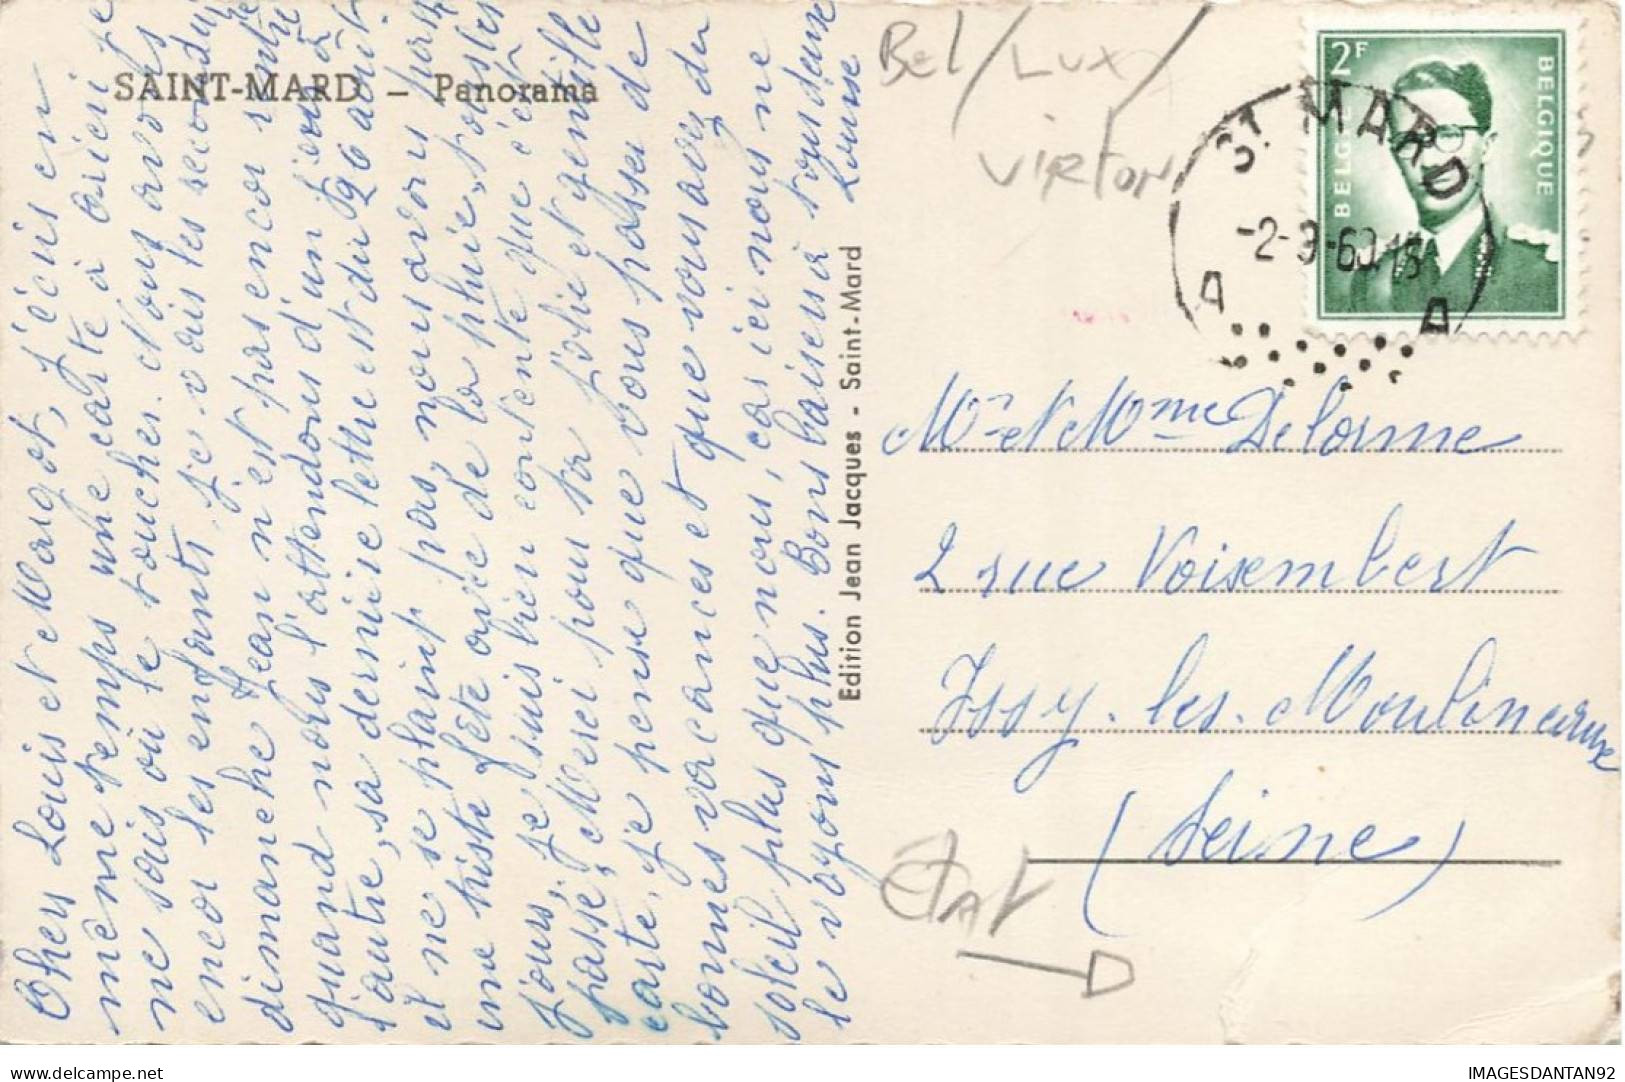 SAINT-MARD – Panorama
Chers Louis et Margot, j'écris en
même temps une carte à
ne sais où le toucher. Nous avons
encor les enfants, je vais les reconduire
dimanche Jean n'est pas encor
quand nous l'attendons d'un jour à
l'autre, sa dernière lettre est du 26 août.
il ne se plaint pas, nous avons
une triste fête avec de la pluie,
jours, je suis bien contente que c'est
passé, Merci pour ta jolie et gentille
carte, je pense que vous passer de
bonnes vacances et que vous avez du
soleil plus que nous, cas ici nous ne
le voyons plus. Bons baisers à tous deux
Louise
Edition Jean Jacques - Saint-Mard
Bel/Lux/
VIRTON
2F
BELGIQUE
ST MARD
-2-9-60.15
A A
Mr et Mme Delorme
2 rue Voisembert
Issy. les. Moulineaux
(Seine)
ETAT
IMAGESDANTAN92
delcampe.net